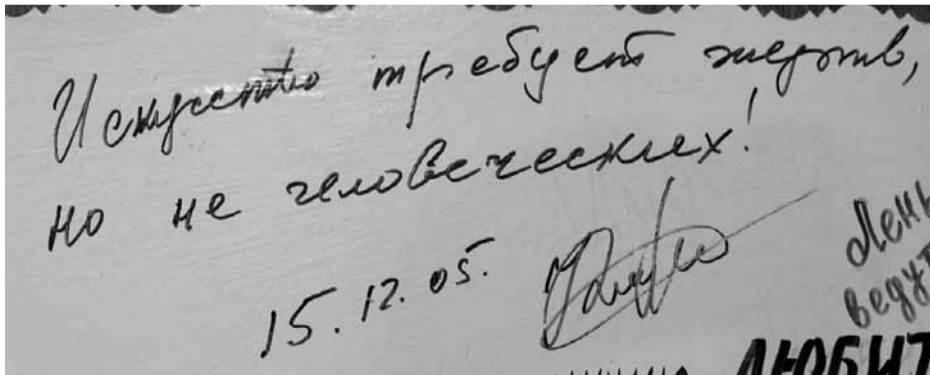 Искусство требует жертв,
но не человеческих!
15.12.05.
Лень
ведут
ЛЮБИТ